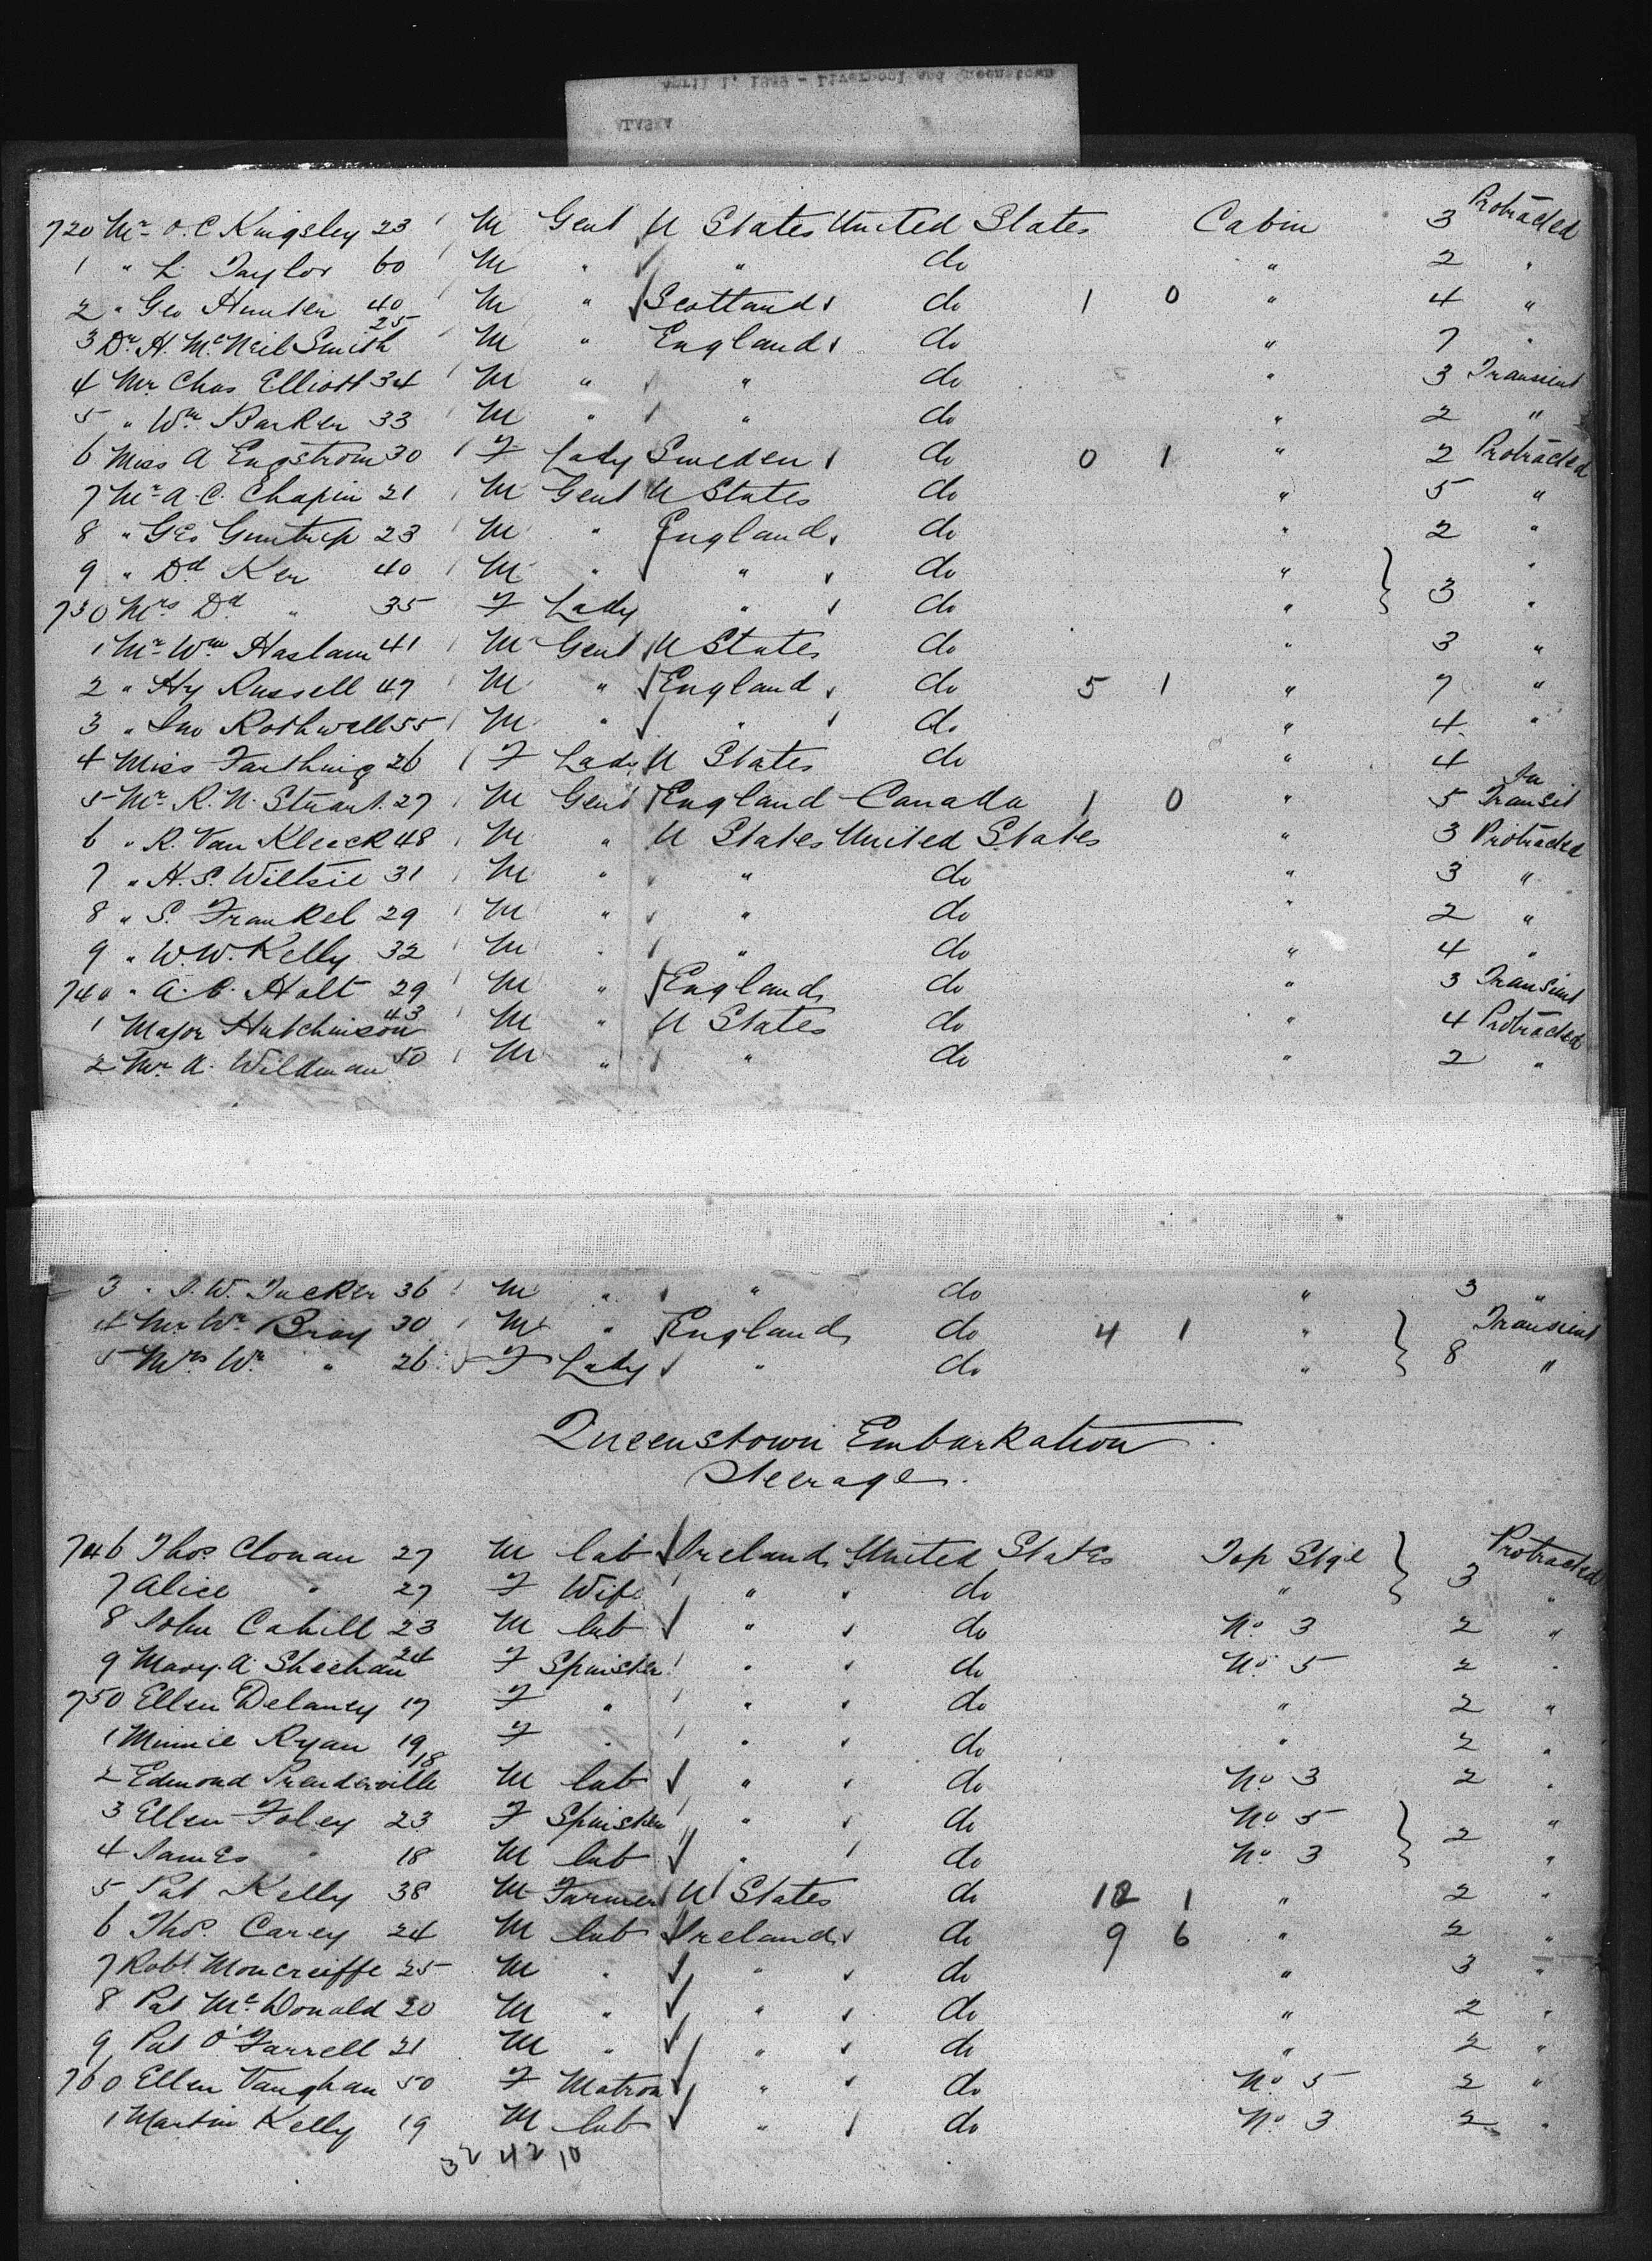 April 1, 1889 - Liverpool and Queenstown
ALASKA
720 Mr O. C Kingsley 23 M Gent U States United States Cabin 3 Protracted
1 " L. Taylor 60 M " " do " 2 "
2 " Geo Hunter 40 M " Scotland do 1 0 " 4 "
3 Dr H. McNeil Smith 25 M " England do " 7 "
4 Mr Chas Elliott 34 M " " do " 3 Transient
5 " Wm Barker 33 M " " do " 2 "
6 Miss A Engstrom 30 F Lady Sweden do 0 1 " 2 Protracted
7 Mr A. C. Chapin 21 M Gent U States do " 5 "
8 " Geo Guntrip 23 M " England do " 2 "
9 " Dd Ker 40 M " " do " } 3 "
730 Mrs Dd " 35 F Lady " do " "
1 Mr Wm Haslam 41 M Gent U States do " 3 "
2 " Hy Russell 47 M " England do 5 1 " 7 "
3 " Jno Rothwell 55 M " " do " 4 "
4 Miss Farthing 26 F Lady U States do " 4
5 Mr R. N. Stuart 27 M Gent England Canada 1 0 " 5 In Transit
6 " R. Van Kleeck 48 M " U States United States " 3 Protracted
7 " H. S. Wiltsie 31 M " " do " 3 "
8 " S. Frankel 29 M " " do " 2 "
9 " W. W. Kelly 32 M " " do " 4 "
740 " A. B. Holt 29 M " England do " 3 Transient
1 Major Hutchinson 43 M " U States do " 4 Protracted
2 Mr A. Wildman 50 M " " do " 2 "
3 " J. W. Tucker 36 M " " do " 3 "
4 Mr Wm Bray 30 M " England do 4 1 " } 8 Transient
5 Mrs Wm " 26 F Lady " do " "
Queenstown Embarkation
Steerage
746 Thos Clonan 27 M lab Ireland United States Top Stge } 3 Protracted
7 Alice " 27 F Wife " do " "
8 John Cahill 23 M lab " do No 3 2 "
9 Mary A Sheehan 24 F Spinster " do No 5 2 "
750 Ellen Delaney 17 F " " do " 2 "
1 Minnie Ryan 19 F " " do " 2 "
2 Edmond Prenderville 18 M lab " do No 3 2 "
3 Ellen Foley 23 F Spinster " do No 5 } 2 "
4 James " 18 M lab " do No 3 "
5 Pat Kelly 38 M Farmer U States do 12 1 " 2 "
6 Thos Carey 24 M lab Ireland do 9 6 " 2 "
7 Robt Moncreiffe 25 M " " do " 3 "
8 Pat McDonald 20 M " " do " 2 "
9 Pat O'Farrell 21 M " " do " 2 "
760 Ellen Vaughan 50 F Matron " do No 5 2 "
1 Martin Kelly 19 M lab " do No 3 2 "
32 42 10